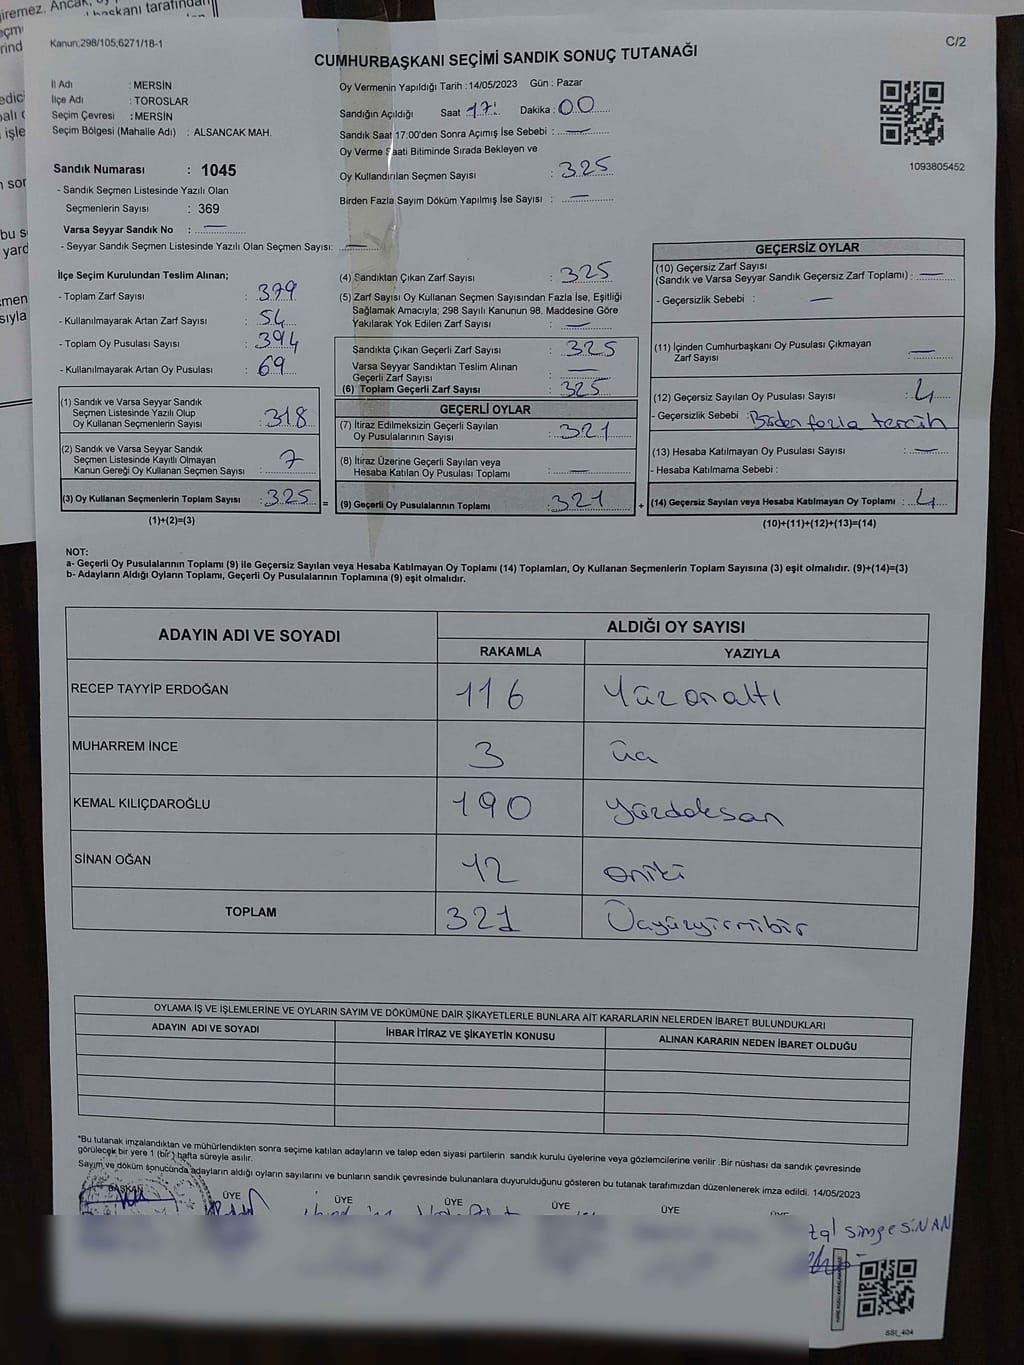 Kanun;298/105;6271/18-1
C/2
CUMHURBAŞKANI SEÇİMİ SANDIK SONUÇ TUTANAĞI
İl Adı : MERSİN
İlçe Adı : TOROSLAR
Seçim Çevresi : MERSİN
Seçim Bölgesi (Mahalle Adı) : ALSANCAK MAH.
Sandık Numarası : 1045
- Sandık Seçmen Listesinde Yazılı Olan
Seçmenlerin Sayısı : 369
Varsa Seyyar Sandık No : —
- Seyyar Sandık Seçmen Listesinde Yazılı Olan Seçmen Sayısı: —
Oy Vermenin Yapıldığı Tarih :14/05/2023 Gün : Pazar
Sandığın Açıldığı Saat 17: Dakika : 00
Sandık Saat 17:00'den Sonra Açımış İse Sebebi : —
Oy Verme Saati Bitiminde Sırada Bekleyen ve
Oy Kullandırılan Seçmen Sayısı : 325
Birden Fazla Sayım Döküm Yapılmış İse Sayısı : —
1093805452
İlçe Seçim Kurulundan Teslim Alınan;
- Toplam Zarf Sayısı : 379
- Kullanılmayarak Artan Zarf Sayısı : 54
- Toplam Oy Pusulası Sayısı : 394
- Kullanılmayarak Artan Oy Pusulası : 69
(1) Sandık ve Varsa Seyyar Sandık
Seçmen Listesinde Yazılı Olup
Oy Kullanan Seçmenlerin Sayısı : 318
(2) Sandık ve Varsa Seyyar Sandık
Seçmen Listesinde Kayıtlı Olmayan
Kanun Gereği Oy Kullanan Seçmen Sayısı : 7
(3) Oy Kullanan Seçmenlerin Toplam Sayısı : 325 =
(1)+(2)=(3)
(4) Sandıktan Çıkan Zarf Sayısı : 325
(5) Zarf Sayısı Oy Kullanan Seçmen Sayısından Fazla İse, Eşitliği
Sağlamak Amacıyla; 298 Sayılı Kanunun 98. Maddesine Göre
Yakılarak Yok Edilen Zarf Sayısı : —
Sandıkta Çıkan Geçerli Zarf Sayısı : 325
Varsa Seyyar Sandıktan Teslim Alınan
Geçerli Zarf Sayısı : —
(6) Toplam Geçerli Zarf Sayısı : 325
GEÇERLİ OYLAR
(7) İtiraz Edilmeksizin Geçerli Sayılan
Oy Pusulalarının Sayısı : 321
(8) İtiraz Üzerine Geçerli Sayılan veya
Hesaba Katılan Oy Pusulası Toplamı : —
(9) Geçerli Oy Pusulalarının Toplamı : 321 +
GEÇERSİZ OYLAR
(10) Geçersiz Zarf Sayısı
(Sandık ve Varsa Seyyar Sandık Geçersiz Zarf Toplamı) : —
- Geçersizlik Sebebi : —
(11) İçinden Cumhurbaşkanı Oy Pusulası Çıkmayan
Zarf Sayısı : —
(12) Geçersiz Sayılan Oy Pusulası Sayısı : 4
- Geçersizlik Sebebi : Birden fazla tercih
(13) Hesaba Katılmayan Oy Pusulası Sayısı : —
- Hesaba Katılmama Sebebi :
(14) Geçersiz Sayılan veya Hesaba Katılmayan Oy Toplamı : 4
(10)+(11)+(12)+(13)=(14)
NOT:
a- Geçerli Oy Pusulalarının Toplamı (9) ile Geçersiz Sayılan veya Hesaba Katılmayan Oy Toplamı (14) Toplamları, Oy Kullanan Seçmenlerin Toplam Sayısına (3) eşit olmalıdır. (9)+(14)=(3)
b- Adayların Aldığı Oyların Toplamı, Geçerli Oy Pusulalarının Toplamına (9) eşit olmalıdır.
ADAYIN ADI VE SOYADI
ALDIĞI OY SAYISI
RAKAMLA YAZIYLA
RECEP TAYYİP ERDOĞAN 116 Yüzonaltı
MUHARREM İNCE 3 üç
KEMAL KILIÇDAROĞLU 190 yüzdoksan
SİNAN OĞAN 12 oniki
TOPLAM 321 Üçyüzyirmibir
OYLAMA İŞ VE İŞLEMLERİNE VE OYLARIN SAYIM VE DÖKÜMÜNE DAİR ŞİKAYETLERLE BUNLARA AİT KARARLARIN NELERDEN İBARET BULUNDUKLARI
ADAYIN ADI VE SOYADI İHBAR İTİRAZ VE ŞİKAYETİN KONUSU ALINAN KARARIN NEDEN İBARET OLDUĞU
*Bu tutanak imzalandıktan ve mühürlendikten sonra seçime katılan adayların ve talep eden siyasi partilerin sandık kurulu üyelerine veya gözlemcilerine verilir .Bir nüshası da sandık çevresinde
görülecek bir yere 1 (bir ) hafta süreyle asılır.
Sayım ve döküm sonucunda adayların aldığı oyların sayılarını ve bunların sandık çevresinde bulunanlara duyurulduğunu gösteren bu tutanak tarafımızdan düzenlenerek imza edildi. 14/05/2023
BAŞKAN ÜYE ÜYE ÜYE ÜYE ÜYE
simge SİNAN
SSI_404